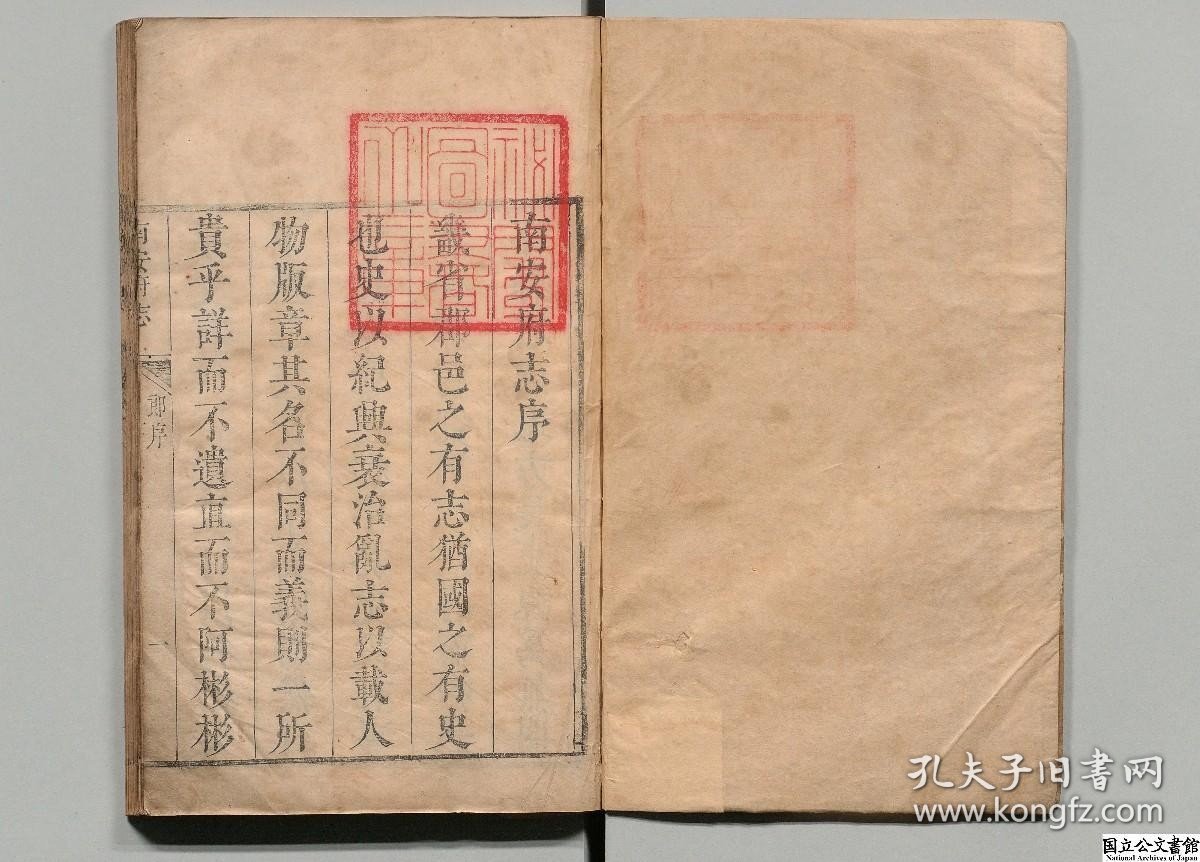 南安府志序
畿省郡邑之有志猶國之有史
也史以紀興衰治亂志以載人
物版章其名不同而義則一所
貴乎詳而不遺直而不阿彬彬
南安府志
郎序
一
孔夫子旧书网
www.kongfz.com
国立公文書館
National Archives of Japan